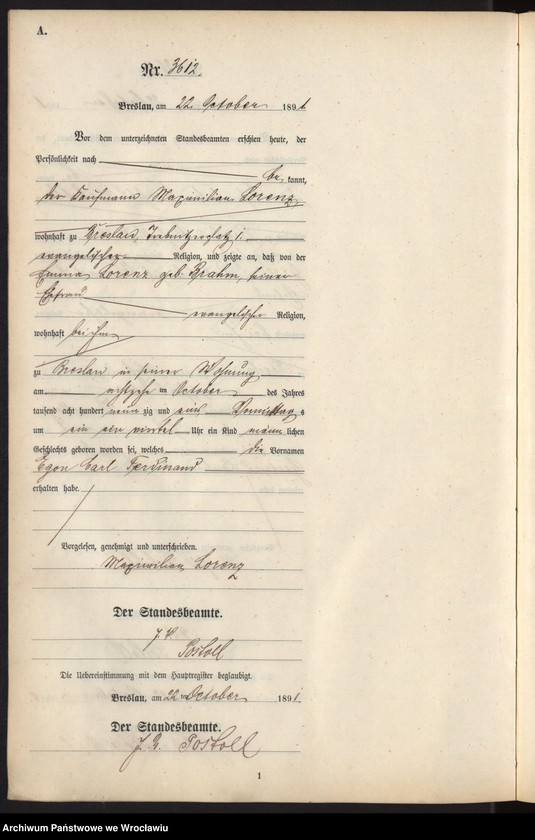 A.
Nr. 3612.
Breslau, am 22 October 1891.
Vor dem unterzeichneten Standesbeamten erschien heute, der
Persönlichkeit nach
be kannt,
der Kaufmann Maximilian Lorenz,
wohnhaft zu Breslau,
evangelischer Religion, und zeigte an, daß von der
Emma Lorenz geb. Brahm, seiner
Ehefrau
evangelischer Religion,
wohnhaft bei ihm
zu Breslau in seiner Wohnung
am October des Jahres
tausend acht hundert neun zig und eins Vormittags
um ein ein viertel Uhr ein Kind männ lichen
Geschlechts geboren worden sei, welches die Vornamen
Egon Carl Ferdinand
erhalten habe.
Vorgelesen, genehmigt und unterschrieben.
Maximilian Lorenz
Der Standesbeamte.
Die Uebereinstimmung mit dem Hauptregister beglaubigt.
Breslau, am 22 ten October 1891.
Der Standesbeamte.
1
Archiwum Państwowe we Wrocławiu